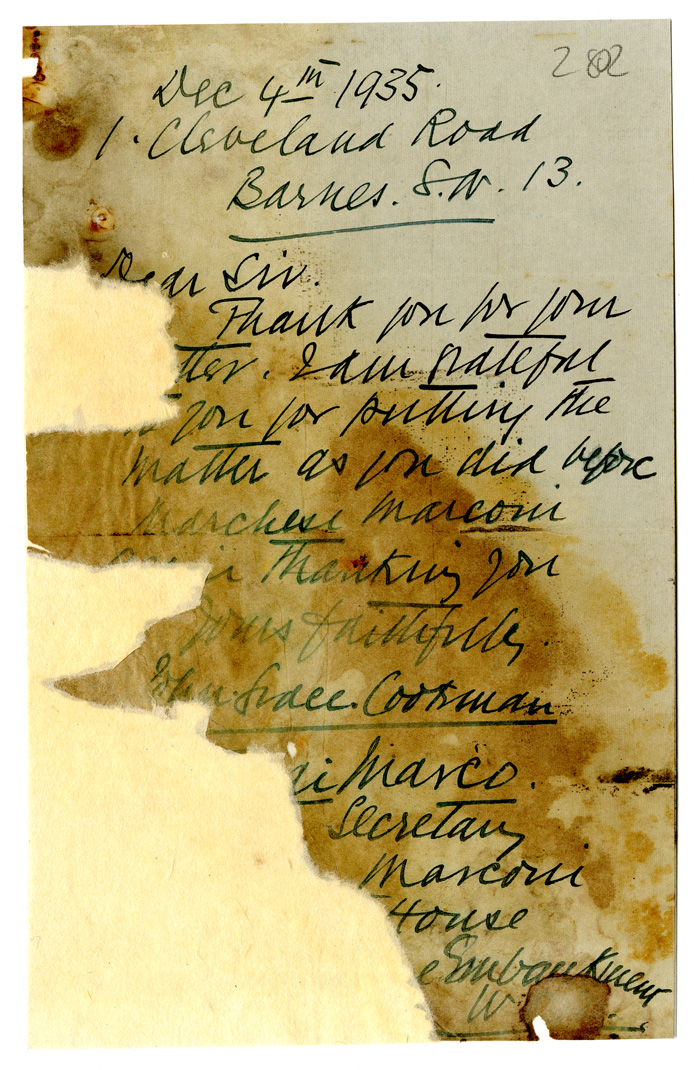 202
Dec 4th 1935.
1. Cleveland Road
Barnes. S.W. 13.
Dear Sir.
Thank you for your
tter. I am grateful
to you for putting the
matter as you did before
Marchese Marconi
thanking you
Yours faithfully.
John. Cooksman
Marco.
Secretary
Marconi
House
e Embankment
W